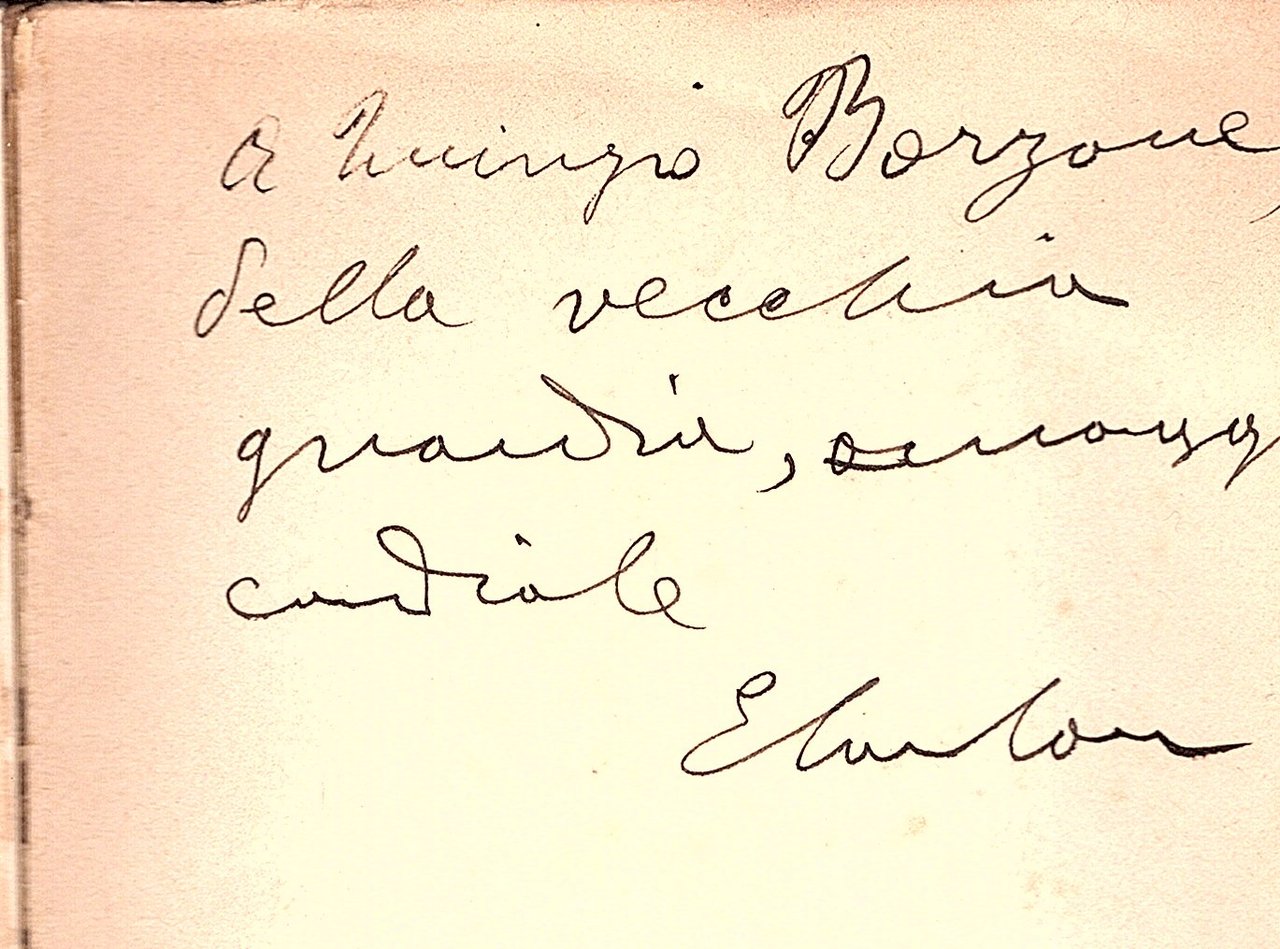 a Nunzio Borzone,
della vecchia
guardia, omagg
cordiale